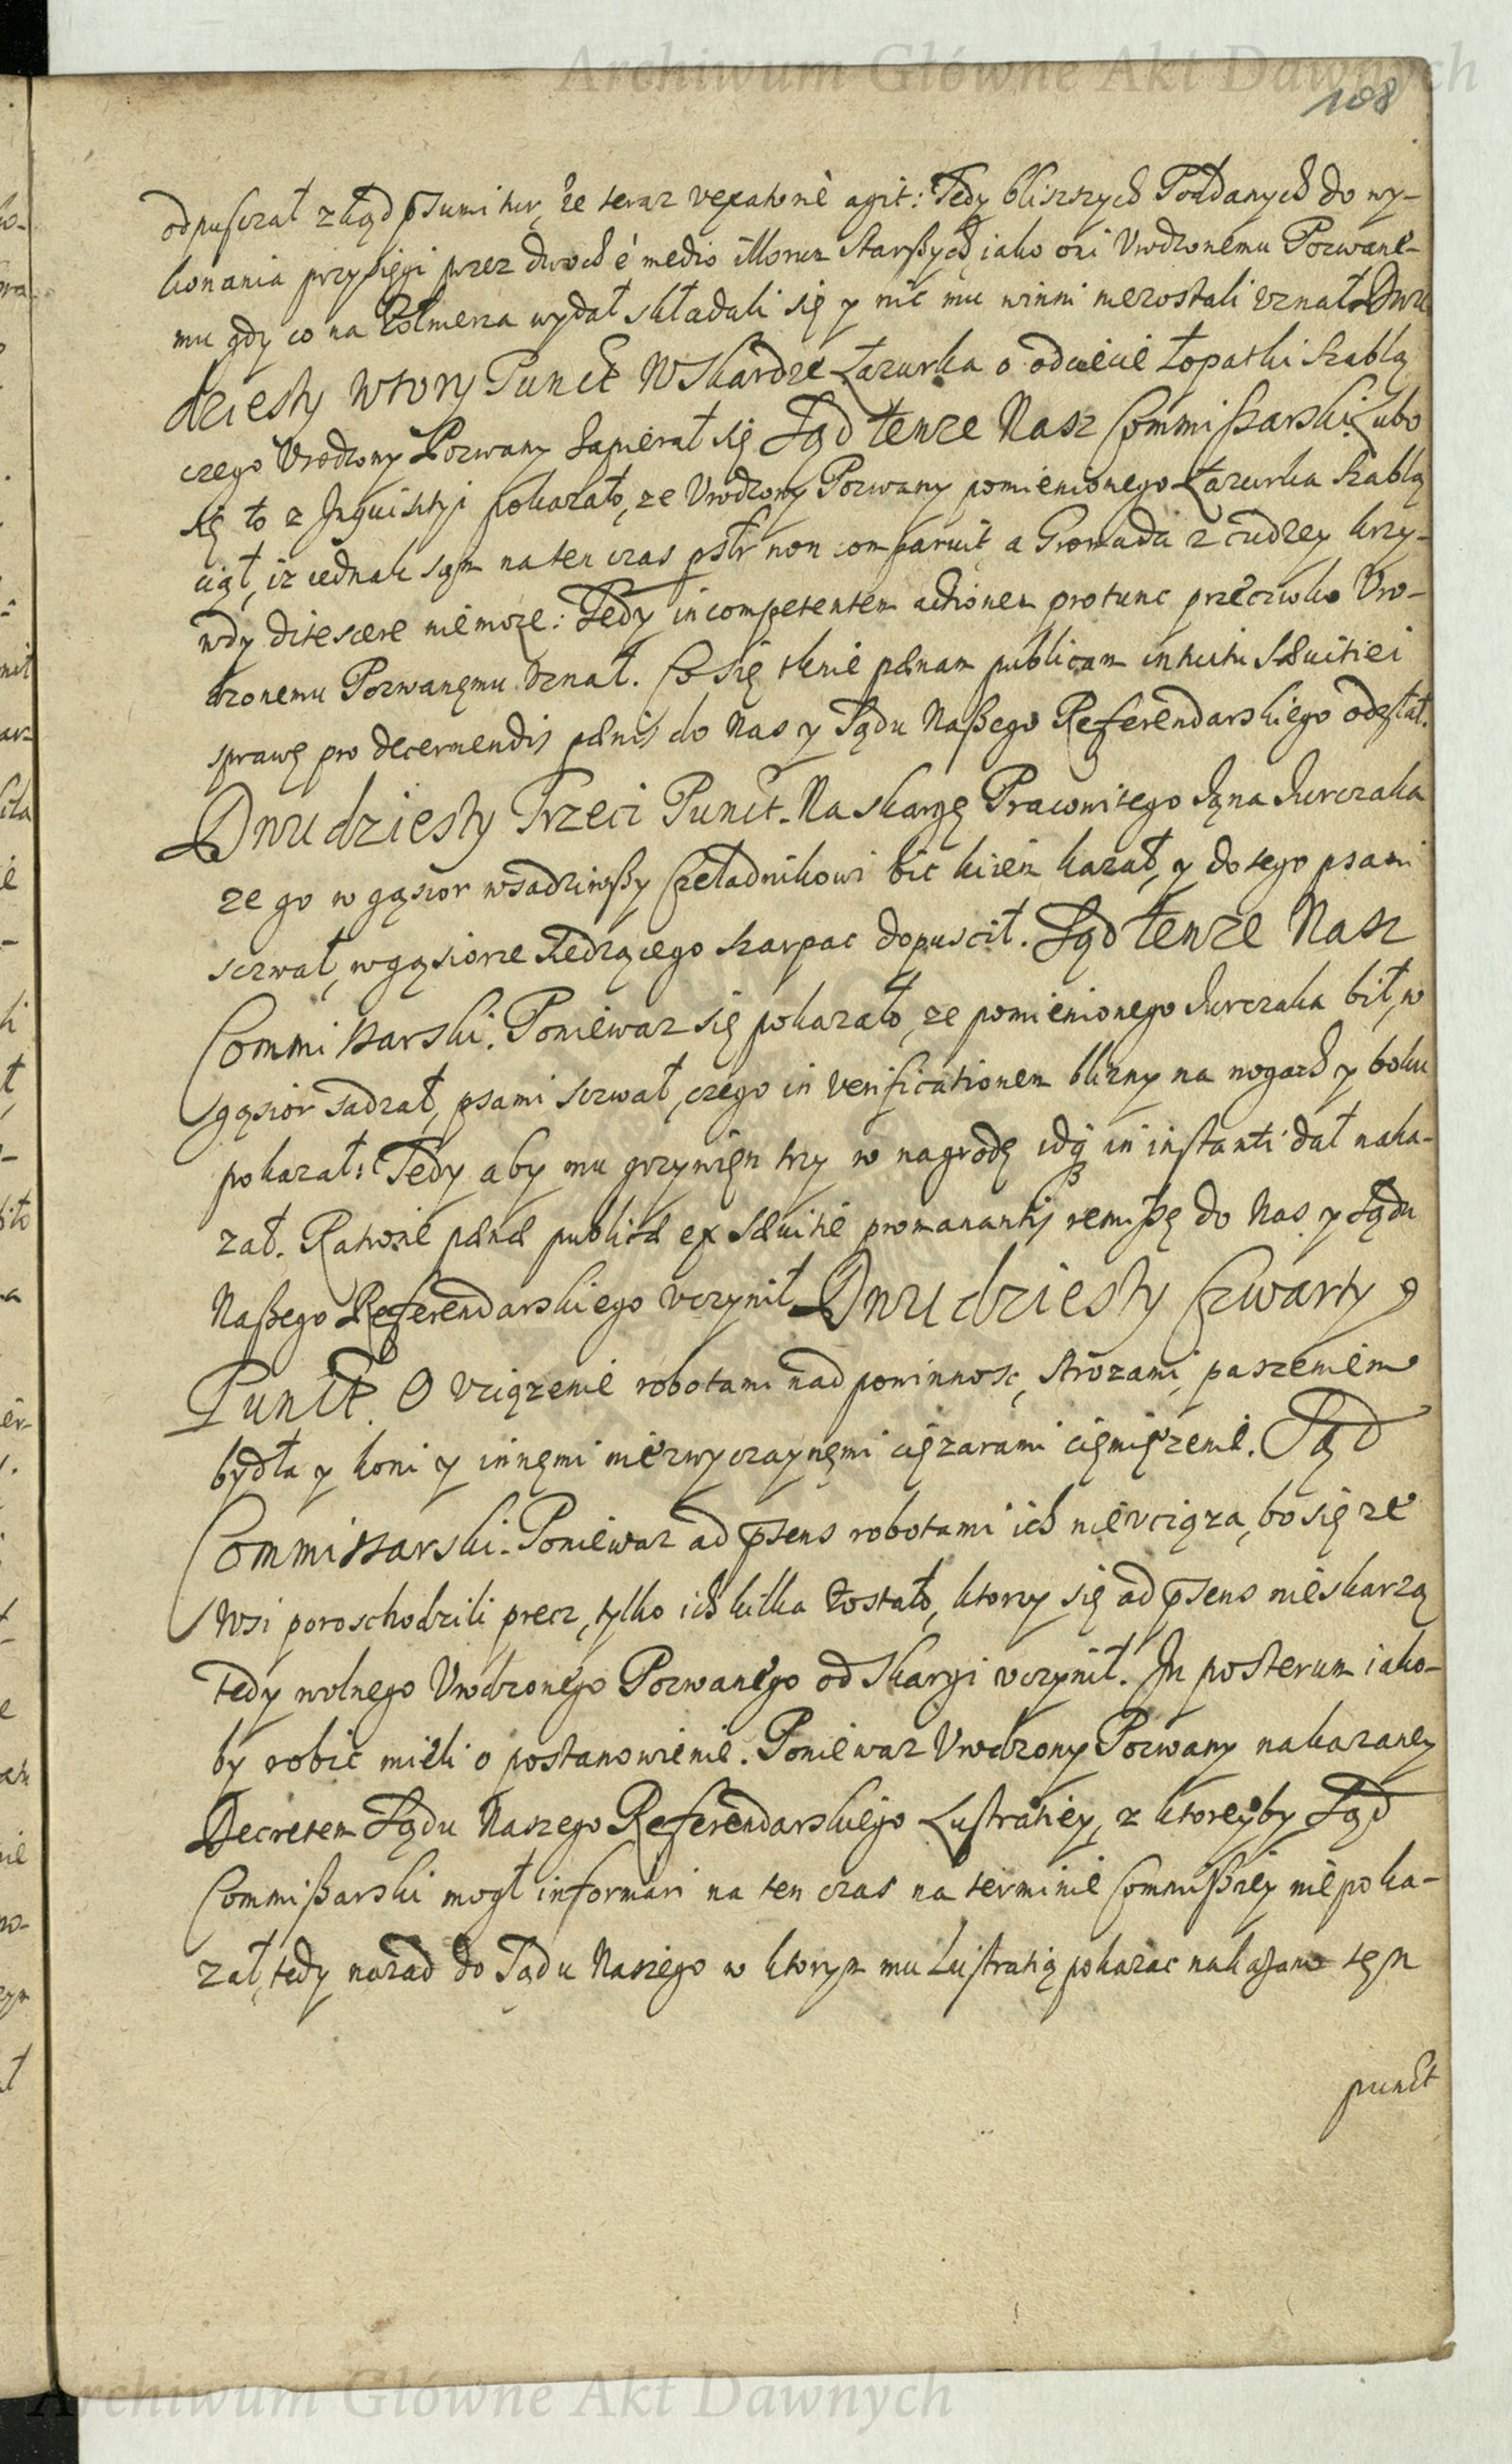 Archiwum Główne Akt Dawnych
108
odpusczał z kąd psumitur, że teraz vexatorie agit: Tedy bliższych Poddanych do wy-
konania przysięgi przez dwoch é medio illorum Starszych, iako oni Vrodzonemu Pozwane-
mu gdy co na Żołnierza wydał składali się y nic mu winni niezostali vznał. Dwu
dziesty wtory Punct W Skardze Łazurka o odcięcie łopatki szablą
czego Vrodzony Pozwany zapierał się Sąd tenze Nasz Commissarski. Lubo
się to z Inquisityi pokazało, ze Vrodzony Pozwany pomienionego Łazurka szablą
ciął, iz iednak sąm na ten czas pstr non comparuit, a Gromada z cudzey krzy-
wdy ditescere niemoze: Tedy incompetentem actionem protunc przeciwko Vro-
dzonemu Pozwanęmu vznał. Co się tknie pænam publicam intuitu Sæuitiei
sprawę pro decernendis pænis do Nas y Sądu Naszego Referendarskiego odesłał.
Dwudziesty Trzeci Punct. Na skargę Pracowitego Jąna Jurczaka
ze go w gąsior wsadziwszy Czeladnikowi bic kiiem kazał, y do tego psami
sczwał, w gąsiorze siedzącego szarpac dopuscił. Sąd tenze Nasz
Commissarski. Poniewaz się pokazało, ze pomienionego Jurczaka bił, w
gąsior sadzał, psami sczwał, czego in verificationem blizny na nogach y boku
pokazał: Tedy aby mu grzywięn trzy w nagrodę idq in instanti dał naka-
zał. Ratione pænæ publicæ ex Sæuitie promanantis remissę do Nas y Sądu
Naszego Referendarskiego vczynił. Dwudziesty Czwarty
Punct. O vciązenie robotami nad powinnosc, strozami, paszeniem
bydła y koni y innęmi niezwyczaynęmi cięzarami ciemięzenie. Sąd
Commissarski. Poniewaz ad psens robotami ich nie vciąza, bo się ze
Wsi poroschodzili precz, tylko ich kilka zostało, ktorzy się ad psens nieskarzą
tedy wolnego Vrodzonego Pozwanego od Skargi vczynił. In posterum iako-
by robic mieli o postanowienie. Poniewaz Vrodzony Pozwany nakazaney
Decretem Sądu Naszego Referendarskiego Lustratiey, z ktoreyby Sąd
Commissarski mogł informari na ten czas na terminie Commissiey niepoka-
zał, tedy nazad do Sądu Naszego w ktorym mu Lustratią pokazac nakazano tęn
punct
Archiwum Główne Akt Dawnych